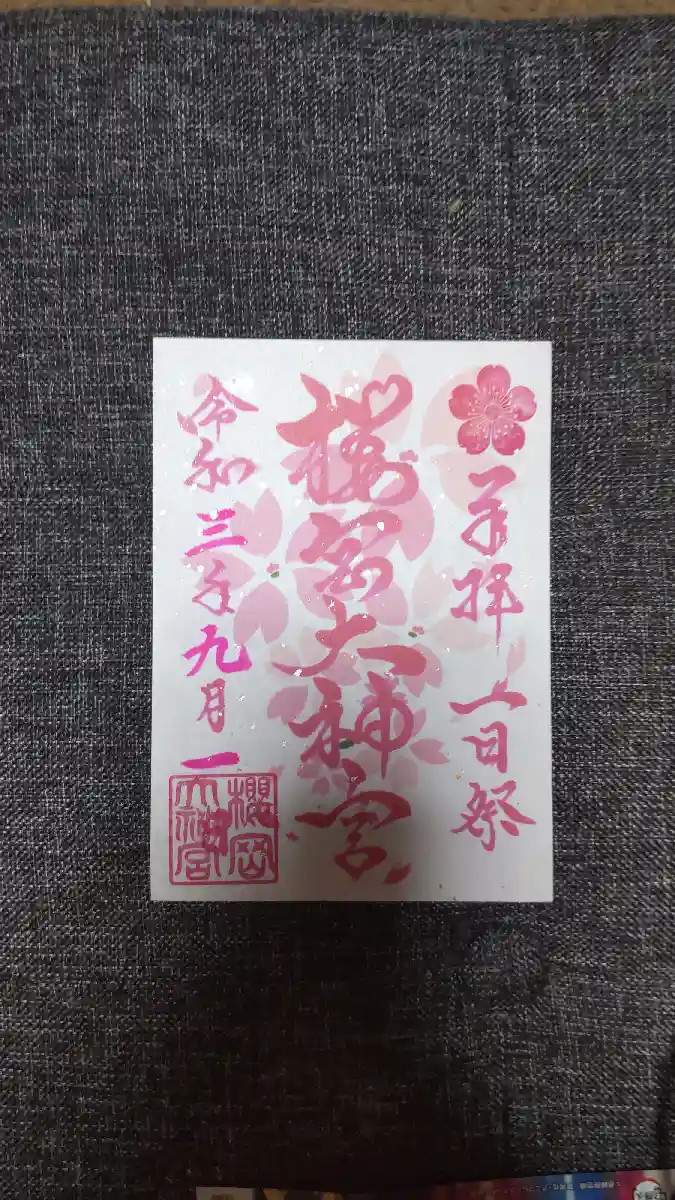 奉拝 一日祭
櫻岡大神宮
令和三年九月一日
櫻岡大神宮